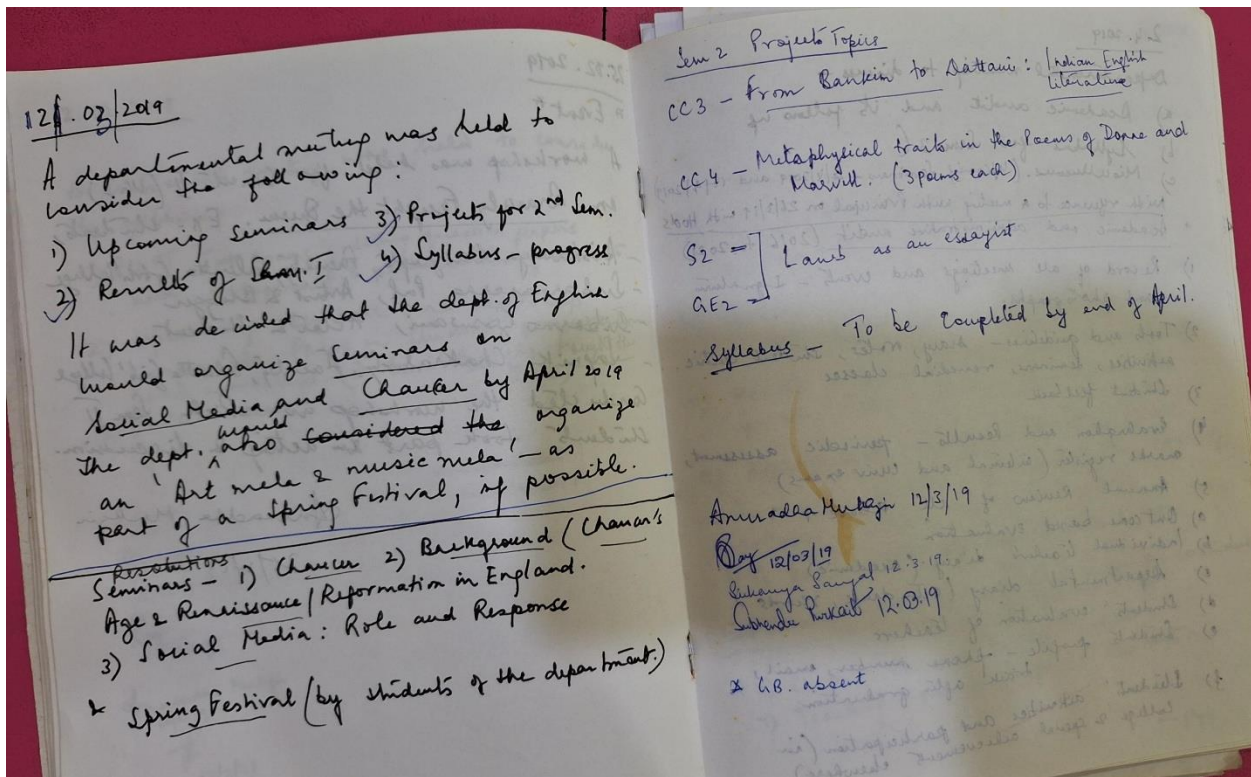 12.03/2019
A departmental meeting was held to
consider the following:
1) Upcoming Seminars 3) Projects for 2nd Sem.
2) Results of Sem. I 4) Syllabus - progress
It was decided that the dept. of English
would organize Seminars on
Social Media and Chaucer by April 2019
The dept. would also considered the organize
an 'Art mela & music mela' - as
part of a Spring Festival, if possible.
Resolutions
Seminars - 1) Chaucer 2) Background (Chaucer's
Age & Renaissance/Reformation in England.
3) Social Media: Role and Response
* Spring Festival (by students of the department.)
Sem 2 Projects Topics
CC3 - From Bankim to Dattani: Indian English
Literature
CC4 - Metaphysical traits in the Poems of Donne and
Marvell. (3 poems each)
S2 =
GE2 = ] Lamb as an essayist
Syllabus - To be completed by end of April.
Anuradha 12/3/19
Ray 12/03/19
Sukanya Sanyal 12.3.19.
Subhendu Purkait 12.03.19
* GB. absent